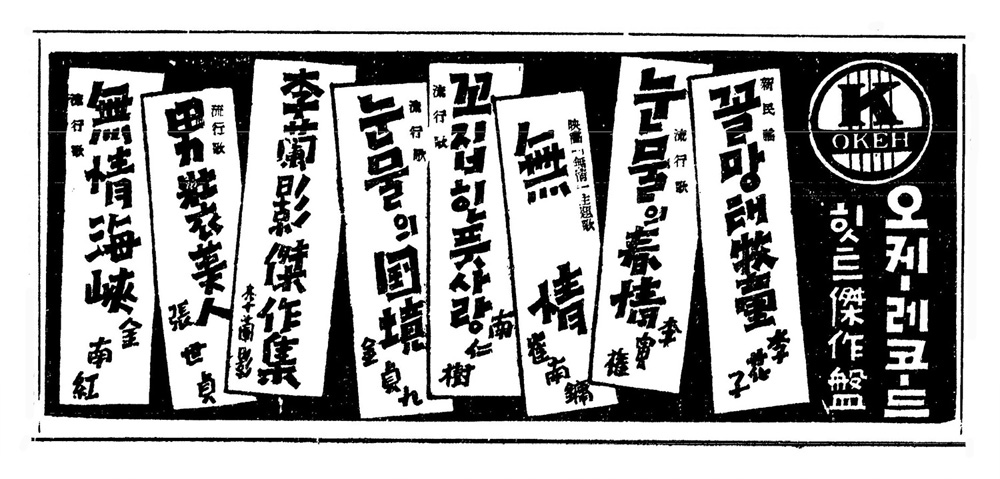 K
OKEH
오케-레코-드
힛트傑作盤
新民謠
꼴망태牧童
李花子
流行歌
눈물의春情
李寅權
映畵「無情」主題歌
無情
崔南鏞
流行歌
꼬집힌풋사랑
南仁樹
流行歌
눈물의国境
金貞九
李蘭影傑作集
李蘭影
流行歌
男裝美人
張世貞
流行歌
無情海峽
金南紅